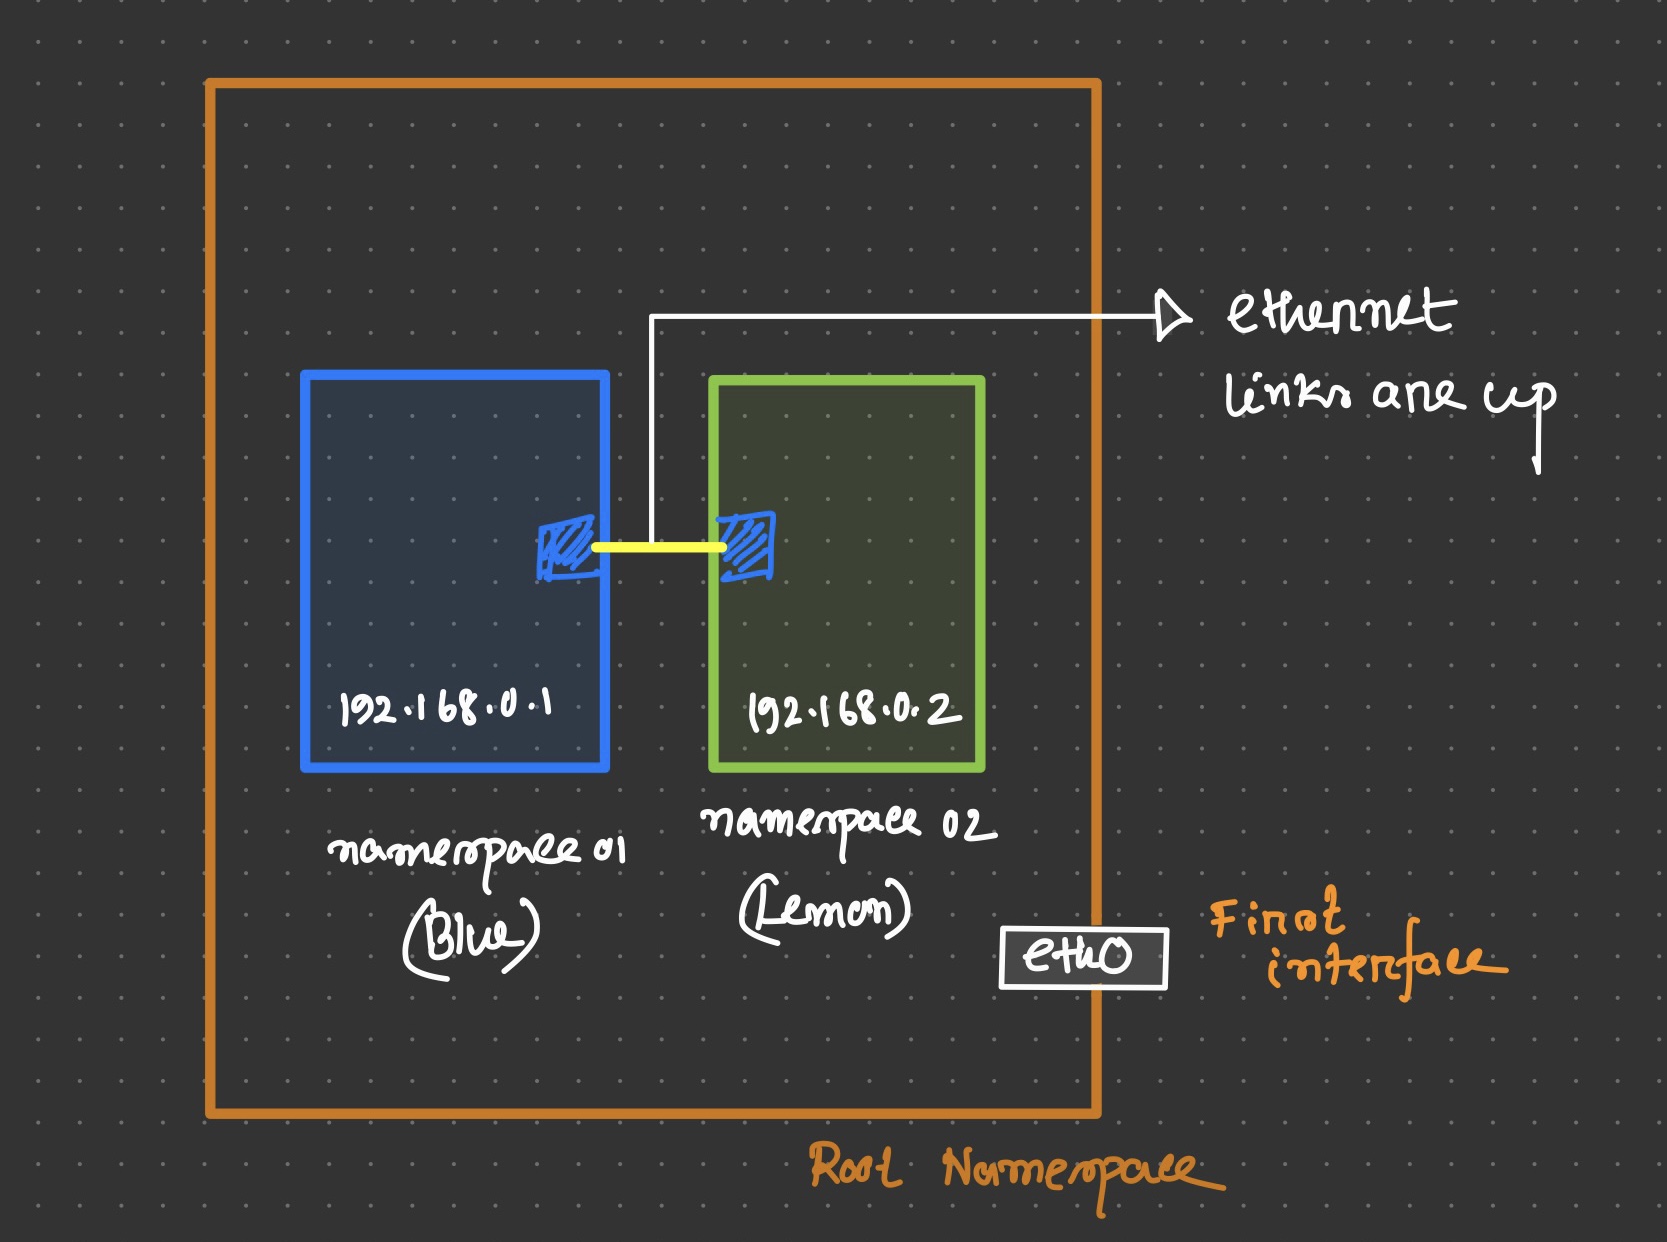 ethernet
links are up
192.168.0.1
192.168.0.2
namespace 01
(Blue)
namespace 02
(Lemon)
eth0
First
interface
Root Namespace